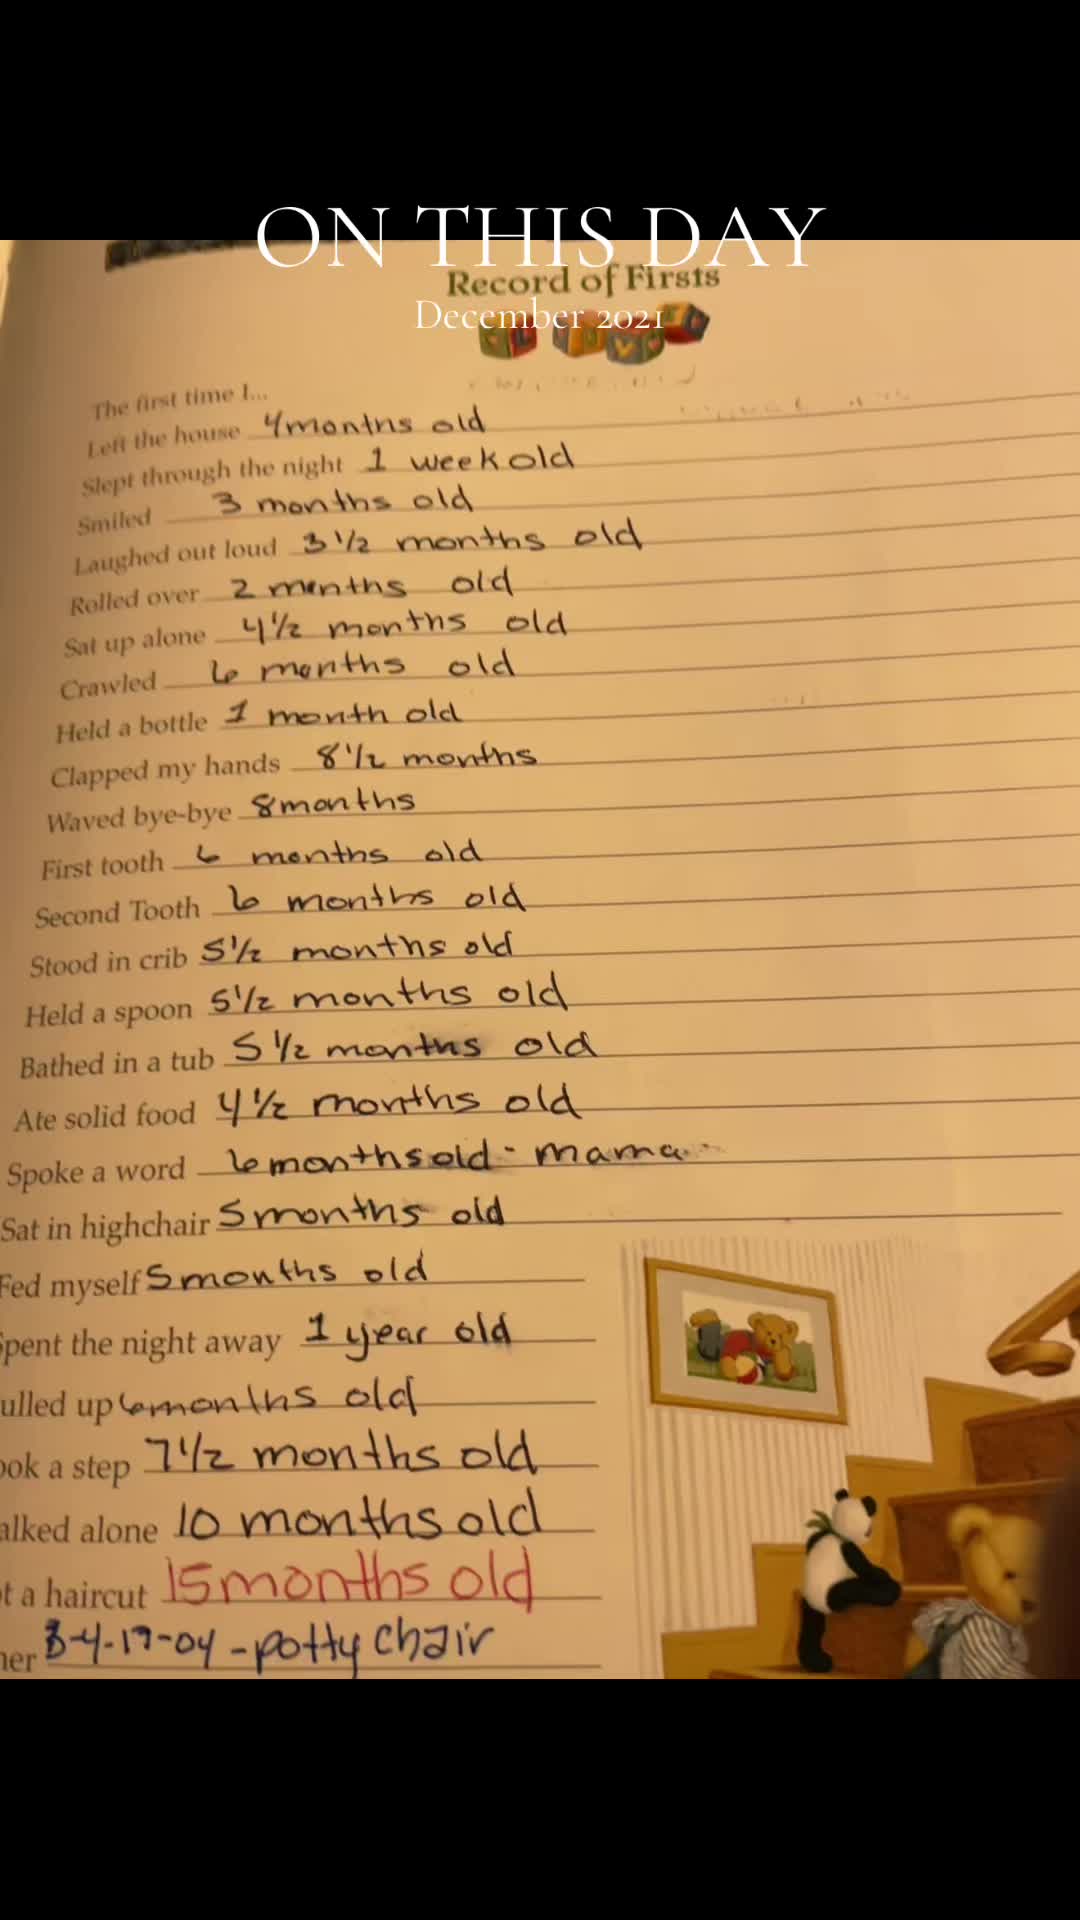 ON THIS DAY
Record of Firsts
December 2021
The first time I...
Left the house 4 months old
Slept through the night 1 week old
Smiled 3 months old
Laughed out loud 3 1/2 months old
Rolled over 2 months old
Sat up alone 4 1/2 months old
Crawled 6 months old
Held a bottle 1 month old
Clapped my hands 8 1/2 months
Waved bye-bye 8 months
First tooth 6 months old
Second Tooth 6 months old
Stood in crib 5 1/2 months old
Held a spoon 5 1/2 months old
Bathed in a tub 5 1/2 months old
Ate solid food 4 1/2 months old
Spoke a word 6 months old - mama
Sat in highchair 5 months old
Fed myself 5 months old
Spent the night away 1 year old
ulled up 6 months old
ook a step 7 1/2 months old
alked alone 10 months old
t a haircut 15 months old
her 3-4-17-04 - potty chair